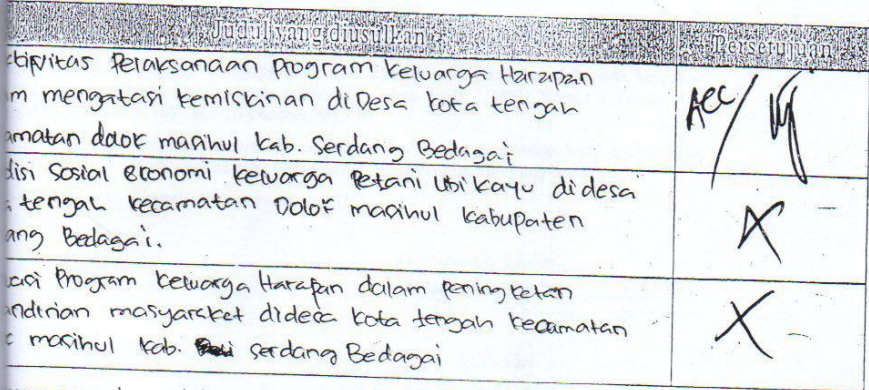 Judul yang diusulkan Persetujuan
ktipvitas Pelaksanaan Program Keluarga Harapan
m mengatasi kemiskinan di Desa kota tengah
amatan dolok masihul kab. Serdang Bedagai
Acc/
disi Sosial Ekonomi keluarga Petani Ubi kayu didesa
a tengah kecamatan Dolok masihul kabupaten
ang Bedagai.
X
uasi Program keluarga Harapan dalam peningketan
andirian masyaraket didesa kota tengah kecamatan
k masihul kab. serdang Bedagai
X